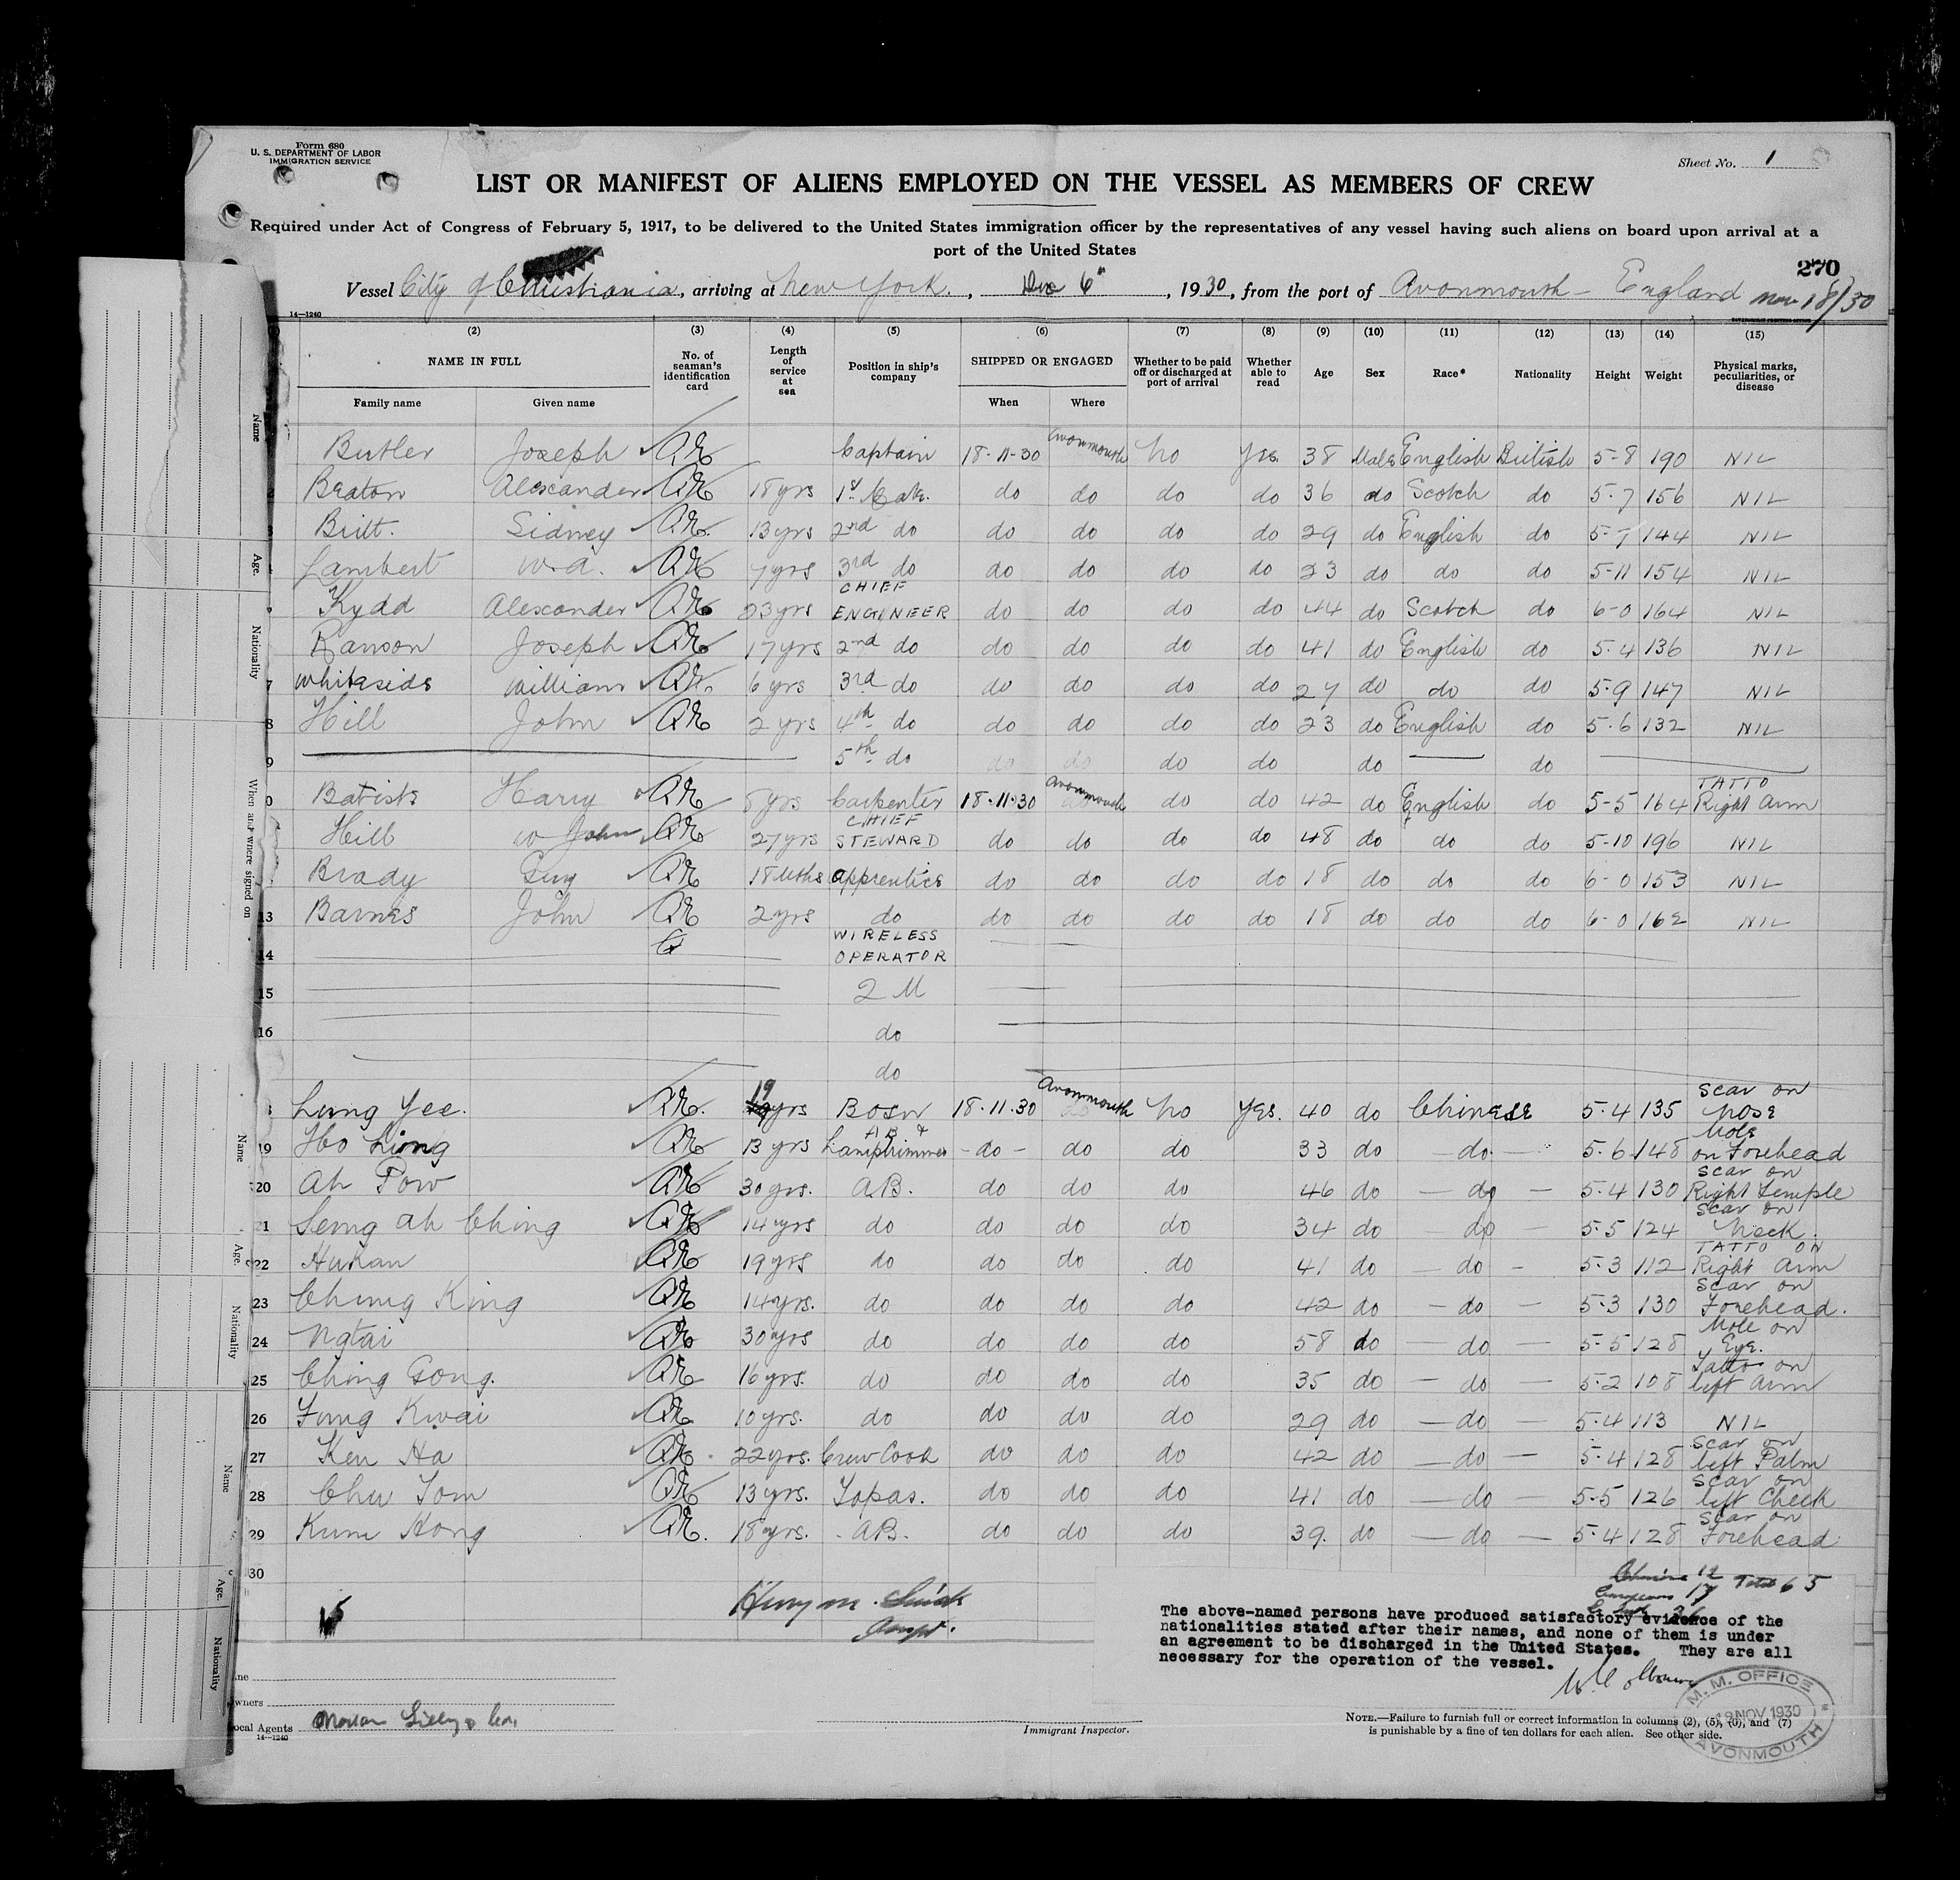 Form 680
U. S. DEPARTMENT OF LABOR
IMMIGRATION SERVICE
Sheet No. 1
LIST OR MANIFEST OF ALIENS EMPLOYED ON THE VESSEL AS MEMBERS OF CREW
Required under Act of Congress of February 5, 1917, to be delivered to the United States immigration officer by the representatives of any vessel having such aliens on board upon arrival at a
port of the United States
270
Vessel City of Christiania, arriving at New York., Dec 6", 1930, from the port of Avonmouth - England Nov 18/30
14—1240
(2) (3) (4) (5) (6) (7) (8) (9) (10) (11) (12) (13) (14) (15)
NAME IN FULL No. of seaman's identification card Length of service at sea Position in ship's company SHIPPED OR ENGAGED Whether to be paid off or discharged at port of arrival Whether able to read Age Sex Race* Nationality Height Weight Physical marks, peculiarities, or disease
Family name Given name When Where
Butler Joseph Captain 18-11-30 Avonmouth No Yes. 38 Male English British 5-8 190 NIL
2 Beaton Alexander 18yrs 1st do do do do 36 do Scotch do 5.7 156 NIL
3 Britt. Sidney 13yrs 2nd do do do do do 29 do English do 5-7 144 NIL
Lambert W.A. 7yrs 3rd do do do do do 23 do do do 5-11 154 NIL
Kydd Alexander 23yrs CHIEF ENGINEER do do do do 44 do Scotch do 6-0 164 NIL
Ranson Joseph 17yrs 2nd do do do do do 41 do English do 5.4 136 NIL
7 Whiteside William 6yrs 3rd do do do do do 27 do do do 5.9 147 NIL
8 Hill John 2yrs 4th do do do do do 23 do English do 5.6 132 NIL
9 5th do do do do do do do
0 Batiste Harry 8yrs Carpenter 18.11.30 Avonmouth do do 42 do English do 5-5 164 TATTO Right Arm
Hill W John 27yrs CHIEF STEWARD do do do do 48 do do do 5-10 196 NIL
Brady Guy 18 Mths Apprentice do do do do 18 do do do 6-0 153 NIL
13 Barnes John 2yrs do do do do do 18 do do do 6-0 162 NIL
14 WIRELESS OPERATOR
15 2 M
16 do
do
Lung Yee. 19yrs Bosn 18.11.30 Avonmouth No Yes. 40 do Chinese 5.4 135 Scar on Nose
19 Ho Ling 13yrs AB & Lamptrimmer -do- do do 33 do —do— 5.6 148 Mole on Forehead
20 Ah Pow 30yrs. AB. do do do 46 do —do— 5.4 130 Scar on Right Temple
21 Seng Ah Ching 14yrs do do do do 34 do do — 5.5 124 Scar on Neck.
22 Hukan 19yrs do do do do 41 do —do— 5.3 112 TATTO ON Right Arm
23 Chung King 14yrs. do do do do 42 do —do— 5.3 130 Scar on Forehead.
24 Ngtai 30yrs do do do do 58 do —do— 5.5 128 Mole on Eye.
25 Ching Gong. 16yrs. do do do do 35 do —do— 5.2 108 Tatto on left Arm
26 Fung Kwai 10yrs. do do do do 29 do —do— 5.4 113 NIL
27 Ken Ha 22yrs. Crew Cook do do do 42 do —do— 5.4 128 Scar on left Palm
28 Chu Tom 13yrs. Topas. do do do 41 do —do— 5.5 126 Scar on left Cheek
29 Kum Hong 18yrs. AB. do do do 39. do —do— 5.4 128 Scar on Forehead
30
Chinese 12 Total 65
Europeans 17
The above-named persons have produced satisfactory evidence of the
nationalities stated after their names, and none of them is under
an agreement to be discharged in the United States. They are all
necessary for the operation of the vessel.
M. M. OFFICE
18 NOV 1930
AVONMOUTH
Local Agents Norton Lilly & Co.
14—1240
Immigrant Inspector.
NOTE.—Failure to furnish full or correct information in columns (2), (5), (6), and (7)
is punishable by a fine of ten dollars for each alien. See other side.
Name
Age.
Nationality
When and where signed on
Name
Age.
Nationality
Name
Age.
Nationality